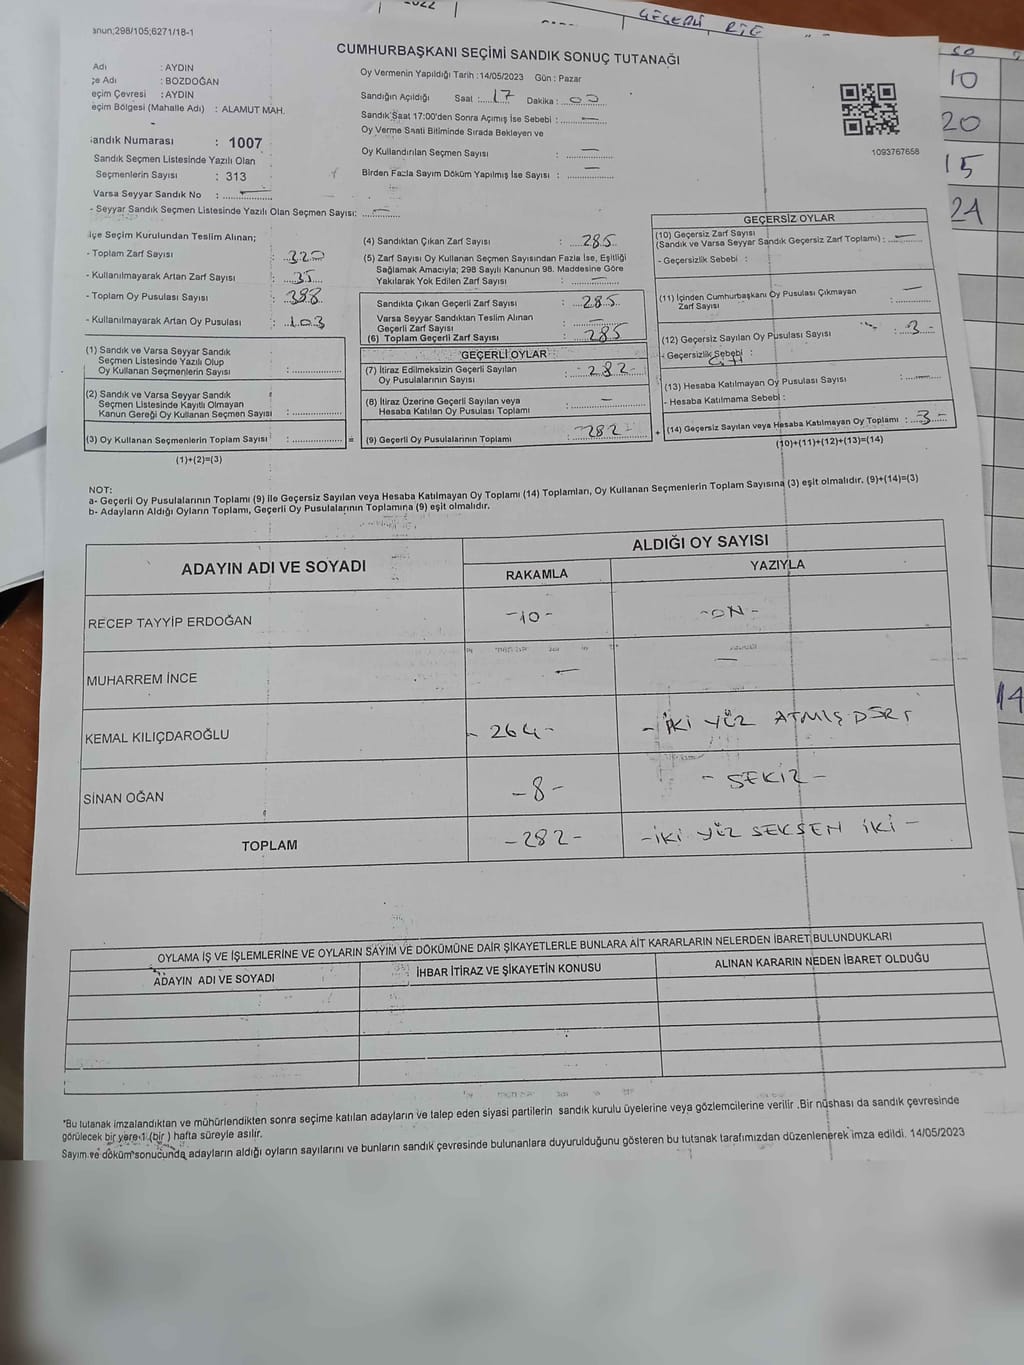 GEÇERLİ,
anun;298/105;6271/18-1
CUMHURBAŞKANI SEÇİMİ SANDIK SONUÇ TUTANAĞI
Adı : AYDIN
çe Adı : BOZDOĞAN
eçim Çevresi : AYDIN
eçim Bölgesi (Mahalle Adı) : ALAMUT MAH.
andık Numarası : 1007
Sandık Seçmen Listesinde Yazılı Olan
Seçmenlerin Sayısı : 313
Varsa Seyyar Sandık No : —
- Seyyar Sandık Seçmen Listesinde Yazılı Olan Seçmen Sayısı: —
Oy Vermenin Yapıldığı Tarih : 14/05/2023 Gün : Pazar
Sandığın Açıldığı Saat : 17 Dakika : 00
Sandık Saat 17:00'den Sonra Açımış İse Sebebi : —
Oy Verme Saati Bitiminde Sırada Bekleyen ve
Oy Kullandırılan Seçmen Sayısı : —
Birden Fazla Sayım Döküm Yapılmış İse Sayısı : —
1093767658
10
20
15
24
14
lçe Seçim Kurulundan Teslim Alınan;
- Toplam Zarf Sayısı : 320
- Kullanılmayarak Artan Zarf Sayısı : 35
- Toplam Oy Pusulası Sayısı : 388
- Kullanılmayarak Artan Oy Pusulası : 103
(1) Sandık ve Varsa Seyyar Sandık
Seçmen Listesinde Yazılı Olup
Oy Kullanan Seçmenlerin Sayısı :
(2) Sandık ve Varsa Seyyar Sandık
Seçmen Listesinde Kayıtlı Olmayan
Kanun Gereği Oy Kullanan Seçmen Sayısı :
(3) Oy Kullanan Seçmenlerin Toplam Sayısı : =
(1)+(2)=(3)
(4) Sandıktan Çıkan Zarf Sayısı : 285
(5) Zarf Sayısı Oy Kullanan Seçmen Sayısından Fazla İse, Eşitliği
Sağlamak Amacıyla; 298 Sayılı Kanunun 98. Maddesine Göre
Yakılarak Yok Edilen Zarf Sayısı : —
Sandıkta Çıkan Geçerli Zarf Sayısı : 285
Varsa Seyyar Sandıktan Teslim Alınan
Geçerli Zarf Sayısı : —
(6) Toplam Geçerli Zarf Sayısı : 285
GEÇERLİ OYLAR
(7) İtiraz Edilmeksizin Geçerli Sayılan
Oy Pusulalarının Sayısı : - 282 -
(8) İtiraz Üzerine Geçerli Sayılan veya
Hesaba Katılan Oy Pusulası Toplamı : —
(9) Geçerli Oy Pusulalarının Toplamı : - 282 - +
GEÇERSİZ OYLAR
(10) Geçersiz Zarf Sayısı
(Sandık ve Varsa Seyyar Sandık Geçersiz Zarf Toplamı) : —
- Geçersizlik Sebebi :
(11) İçinden Cumhurbaşkanı Oy Pusulası Çıkmayan
Zarf Sayısı : —
(12) Geçersiz Sayılan Oy Pusulası Sayısı : - 3 -
- Geçersizlik Sebebi :
(13) Hesaba Katılmayan Oy Pusulası Sayısı : —
- Hesaba Katılmama Sebebi :
(14) Geçersiz Sayılan veya Hesaba Katılmayan Oy Toplamı : - 3 -
(10)+(11)+(12)+(13)=(14)
NOT:
a- Geçerli Oy Pusulalarının Toplamı (9) ile Geçersiz Sayılan veya Hesaba Katılmayan Oy Toplamı (14) Toplamları, Oy Kullanan Seçmenlerin Toplam Sayısına (3) eşit olmalıdır. (9)+(14)=(3)
b- Adayların Aldığı Oyların Toplamı, Geçerli Oy Pusulalarının Toplamına (9) eşit olmalıdır.
ADAYIN ADI VE SOYADI
ALDIĞI OY SAYISI
RAKAMLA YAZIYLA
RECEP TAYYİP ERDOĞAN - 10 - - ON -
MUHARREM İNCE — —
KEMAL KILIÇDAROĞLU - 264 - - İKİ YÜZ ATMIŞ DÖRT
SİNAN OĞAN - 8 - - SEKİZ -
TOPLAM - 282 - - İKİ YÜZ SEKSEN İKİ -
OYLAMA İŞ VE İŞLEMLERİNE VE OYLARIN SAYIM VE DÖKÜMÜNE DAİR ŞİKAYETLERLE BUNLARA AİT KARARLARIN NELERDEN İBARET BULUNDUKLARI
ADAYIN ADI VE SOYADI İHBAR İTİRAZ VE ŞİKAYETİN KONUSU ALINAN KARARIN NEDEN İBARET OLDUĞU
*Bu tutanak imzalandıktan ve mühürlendikten sonra seçime katılan adayların ve talep eden siyasi partilerin sandık kurulu üyelerine veya gözlemcilerine verilir .Bir nüshası da sandık çevresinde
görülecek bir yere 1 (bir ) hafta süreyle asılır.
Sayım ve döküm sonucunda adayların aldığı oyların sayılarını ve bunların sandık çevresinde bulunanlara duyurulduğunu gösteren bu tutanak tarafımızdan düzenlenerek imza edildi. 14/05/2023